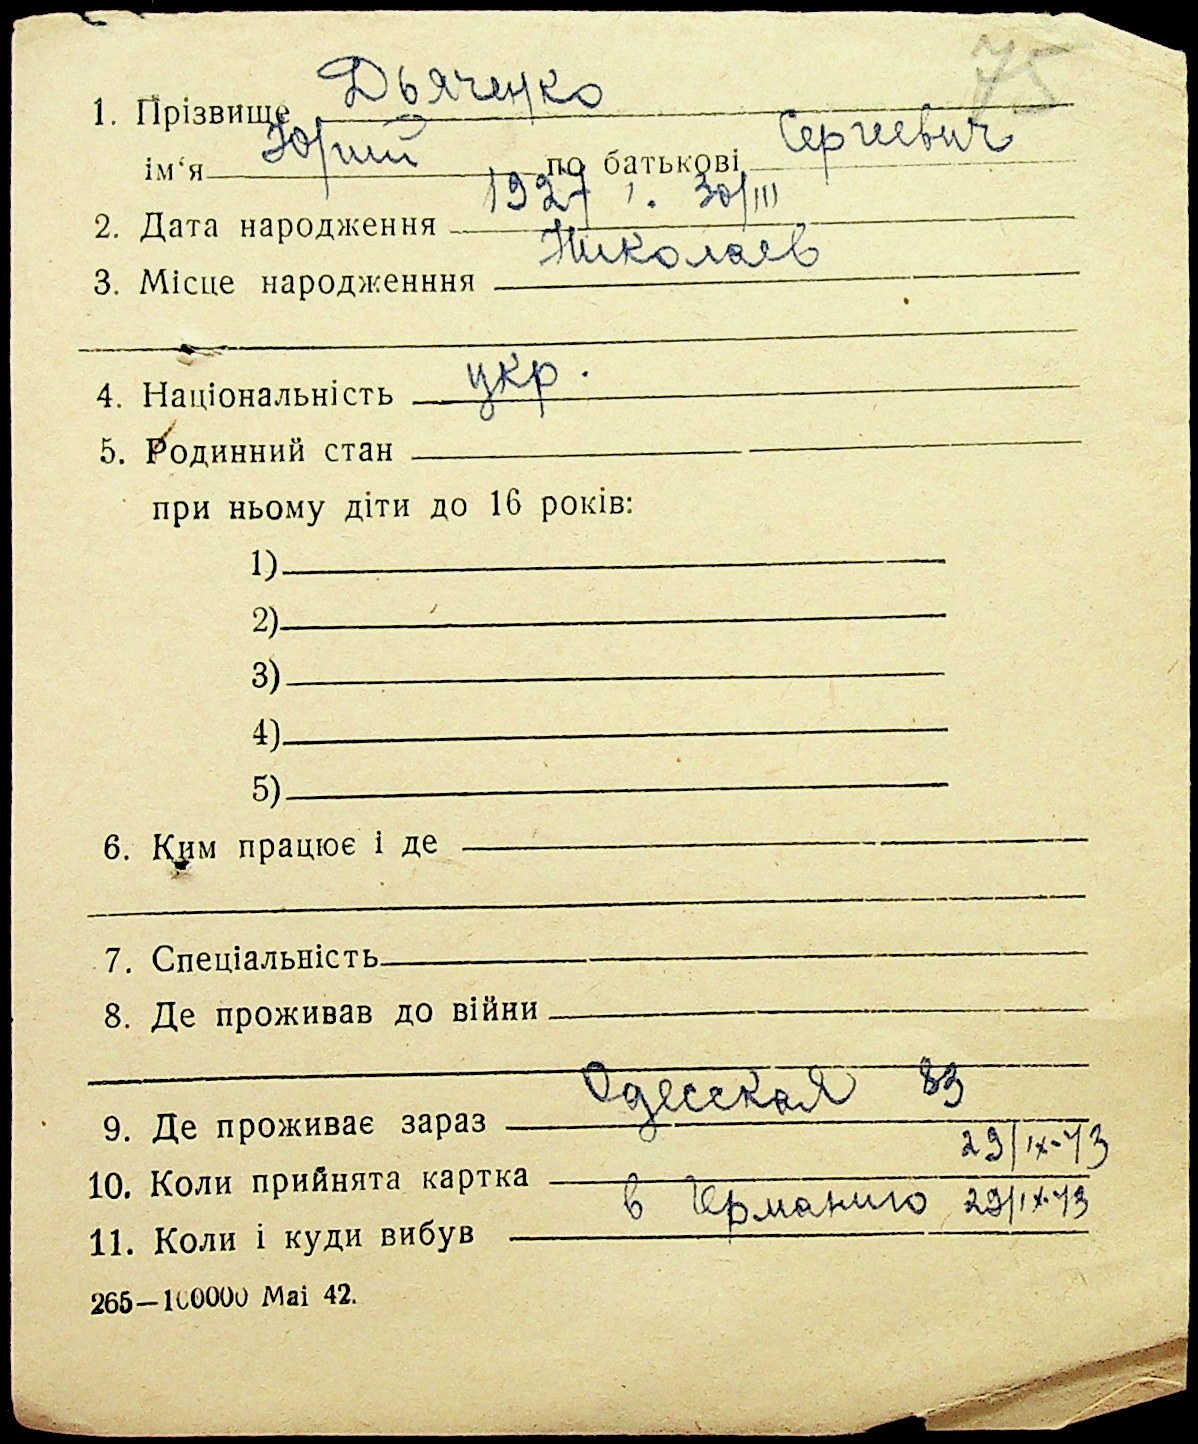 75
1. Прізвище Дьяченко
ім‘я Юрий по батькові Сергеевич
2. Дата народження 1927 г. 30/III
3. Місце народженння Николаев
4. Національність укр.
5. Родинний стан
при ньому діти до 16 років:
1)
2)
3)
4)
5)
6. Ким працює і де
7. Спеціальність
8. Де проживав до війни
9. Де проживає зараз Одесская 83
10. Коли прийнята картка 29/IX-43
11. Коли і куди вибув в Германию 29/IX-43
265—100000 Маі 42.